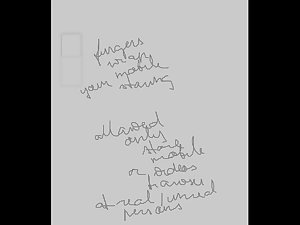 fingers
wrap
mobile
your staring
allowed
only
stare
mobile
or
at real
persons